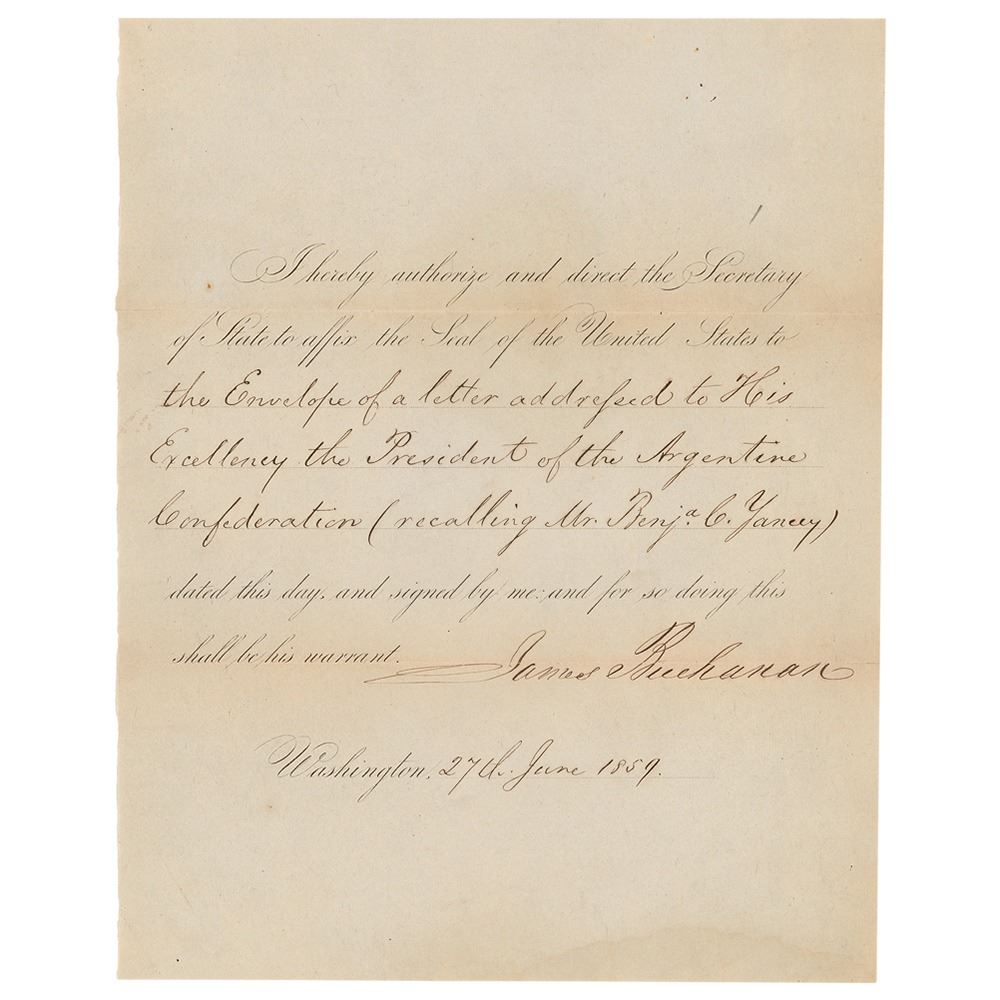 I hereby authorize and direct the Secretary
of State to affix the Seal of the United States to
the Envelope of a letter addressed to His
Excellency the President of the Argentine
Confederation (recalling Mr. Benjª. C. Yancey)
dated this day, and signed by me: and for so doing this
shall be his warrant.
James Buchanan
Washington, 27th. June 1859.